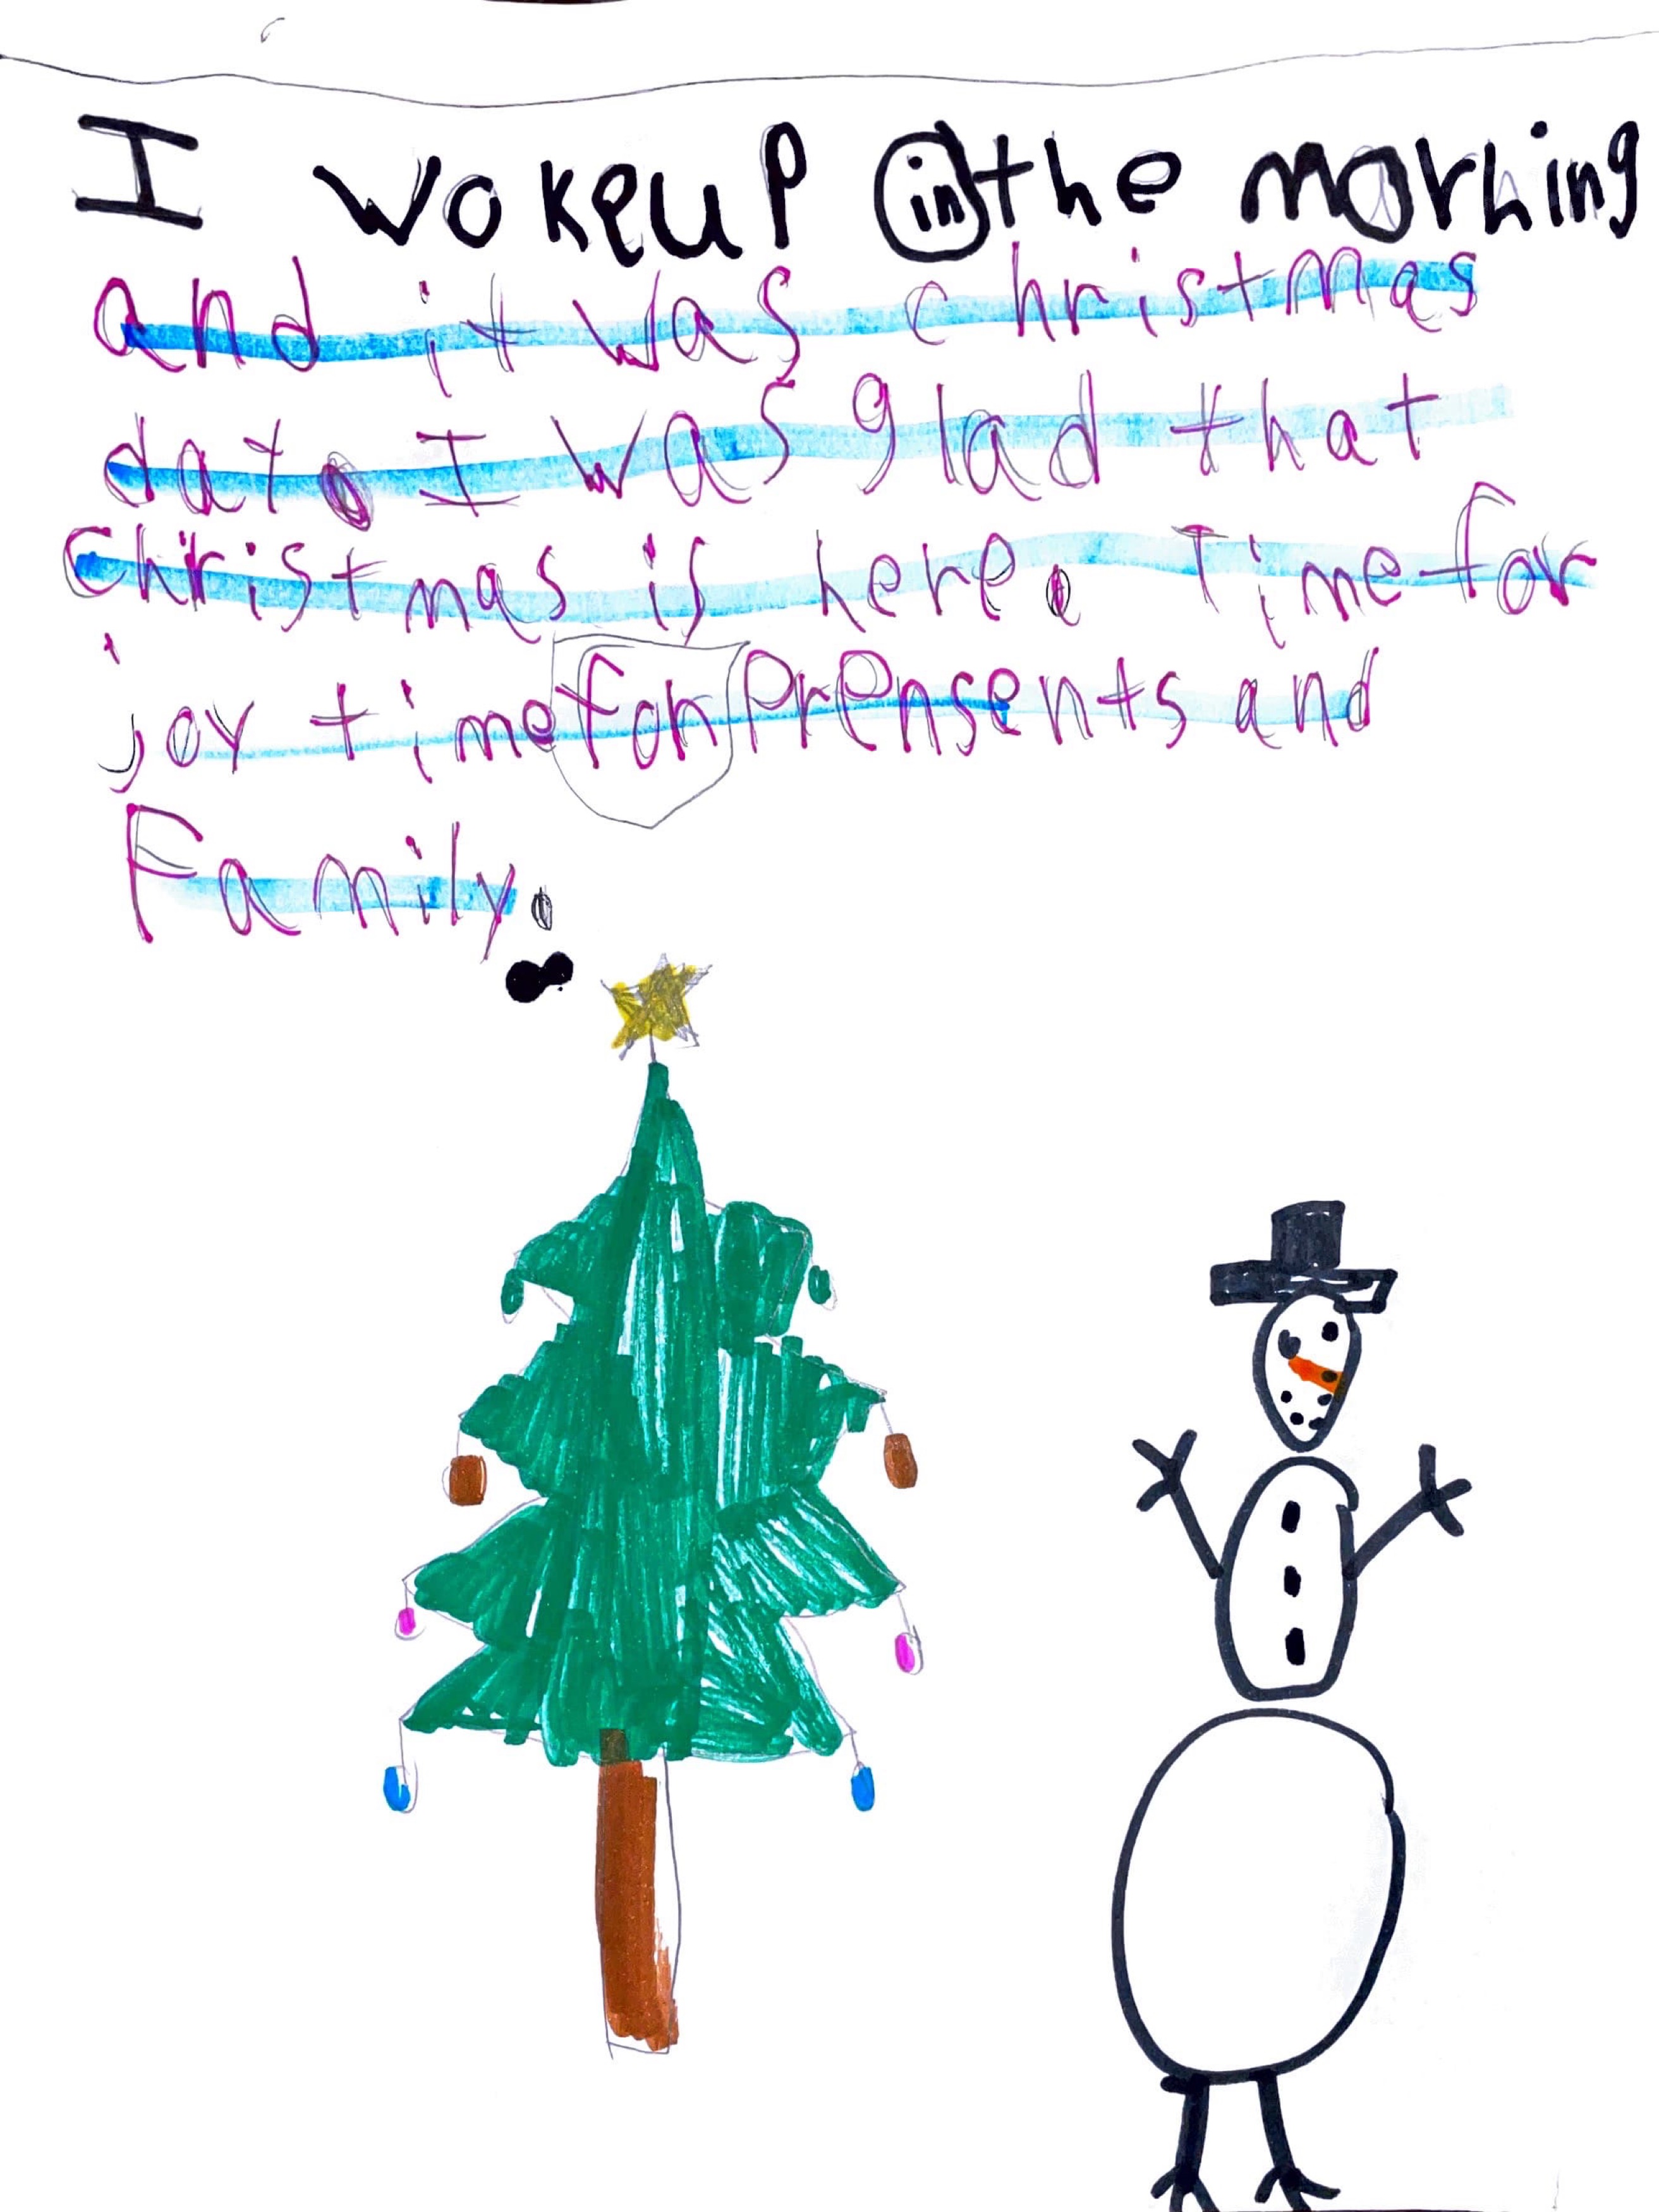 I wokeup in the morning
and it was christmas
day. I was glad that
Christmas is here. Time for
joy time for Prensents and
Family.